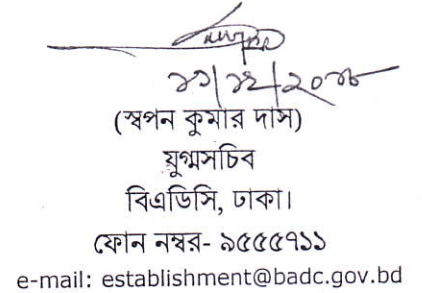 (স্বপন কুমার দাস)
যুগ্মসচিব
বিএডিসি, ঢাকা।
ফোন নম্বর- ৯৫৫৫৭১১
e-mail: establishment@badc.gov.bd